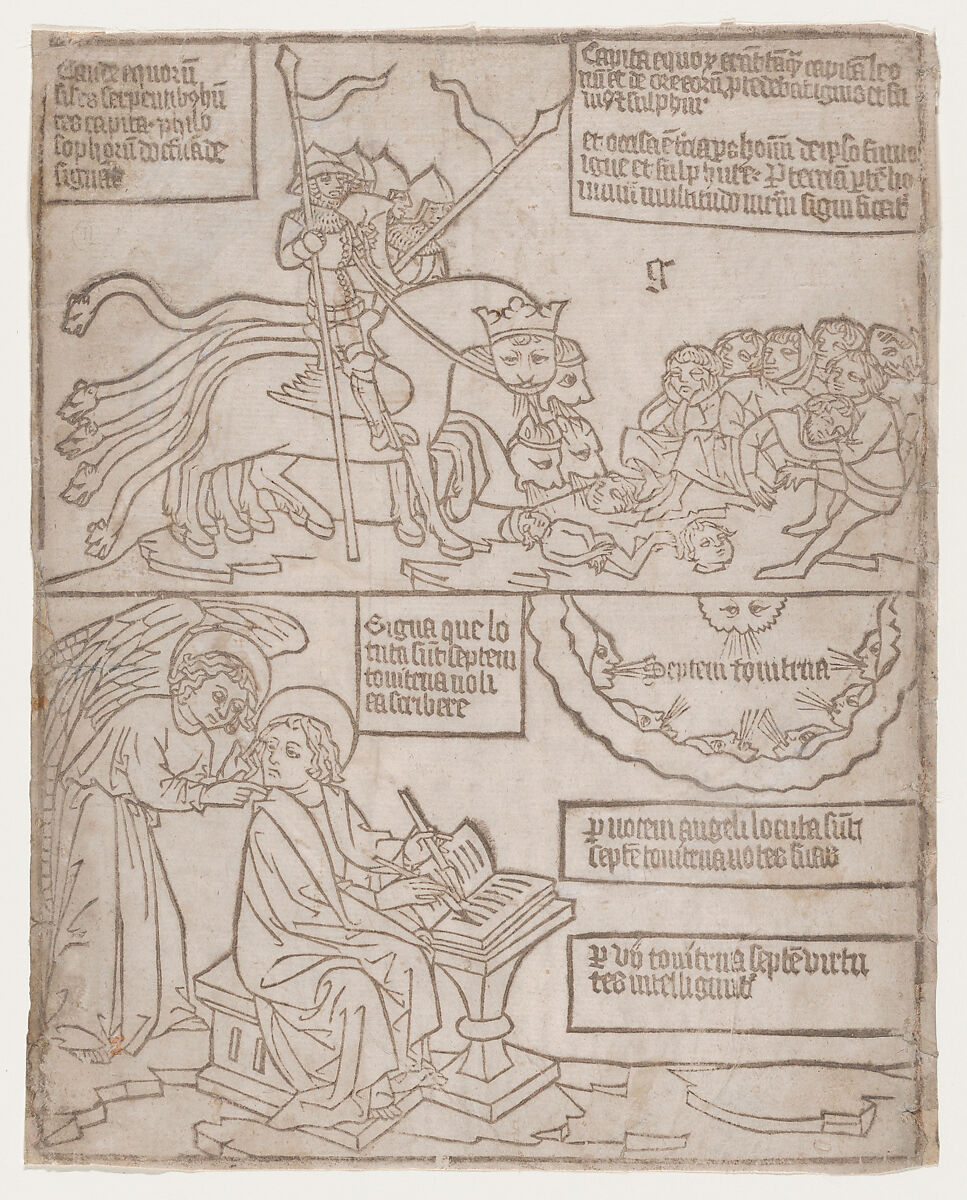 Caude equorū
siles serpentibꝯ hn̄
tes capita · philo
sophorum doct'nā de
signāt
Capita equoꝝ erāt tāqꝫ capita leo
nū et de ore eorū p'cedebat ignis et fu
mꝯ et sulphur ·
et occisa ē t'cia ps hom̄ de ipso fumo
igne et sulphure
multitudo
g
Signa que lo
cuta sūt septem
tonitrua noli
ea scribere
Septem tonitrua
p vocem angeli locuta sūt
septē tonitrua voces suas
p vii tonitrua septē virtu
tes intelligunt